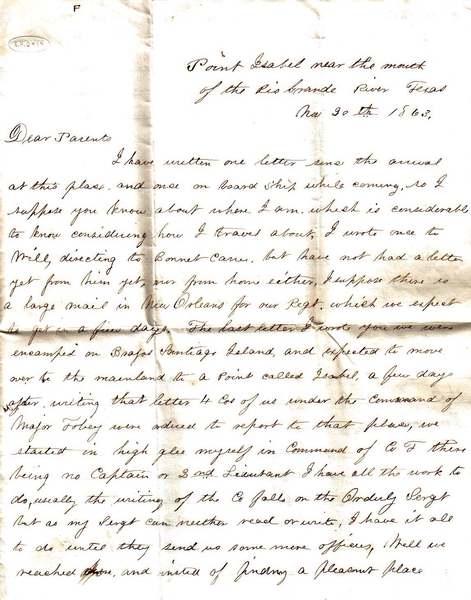 F
Point Isabel near the mouth
of the Rio Grande River Texas
Nov 30th 1863.
Dear Parents
I have written one letter sens the arrival
at this plase and once on board Ship while coming, so I
suppose you know about where I am. which is considerable
to know considering how I travel about, I wrote once to
Will, directing to Bonnet Carre. but have not had a letter
yet from him yet, nor from home either, I suppose there is
a large mail in New Orleans for our Regt, which we expect
to get in a few days. The last letter I wrote you we were
encamped on Brazos Santiago Island, and expected to move
over to the mainland to a Point called Isabel, a few days
after writing that letter 4 Cos of us under the Command of
Major Tobey were ordered to report to that place, we
started in high glee myself in Command of Co F there
being no Captain or 2nd Lieutant I have all the work to
do, usually the writing of the Co falls on the Orderly Sergt
but as my Sergt can neither read or write, I have it all
to do until they send us some more officers, Well we
reached and insted of finding a pleasant place